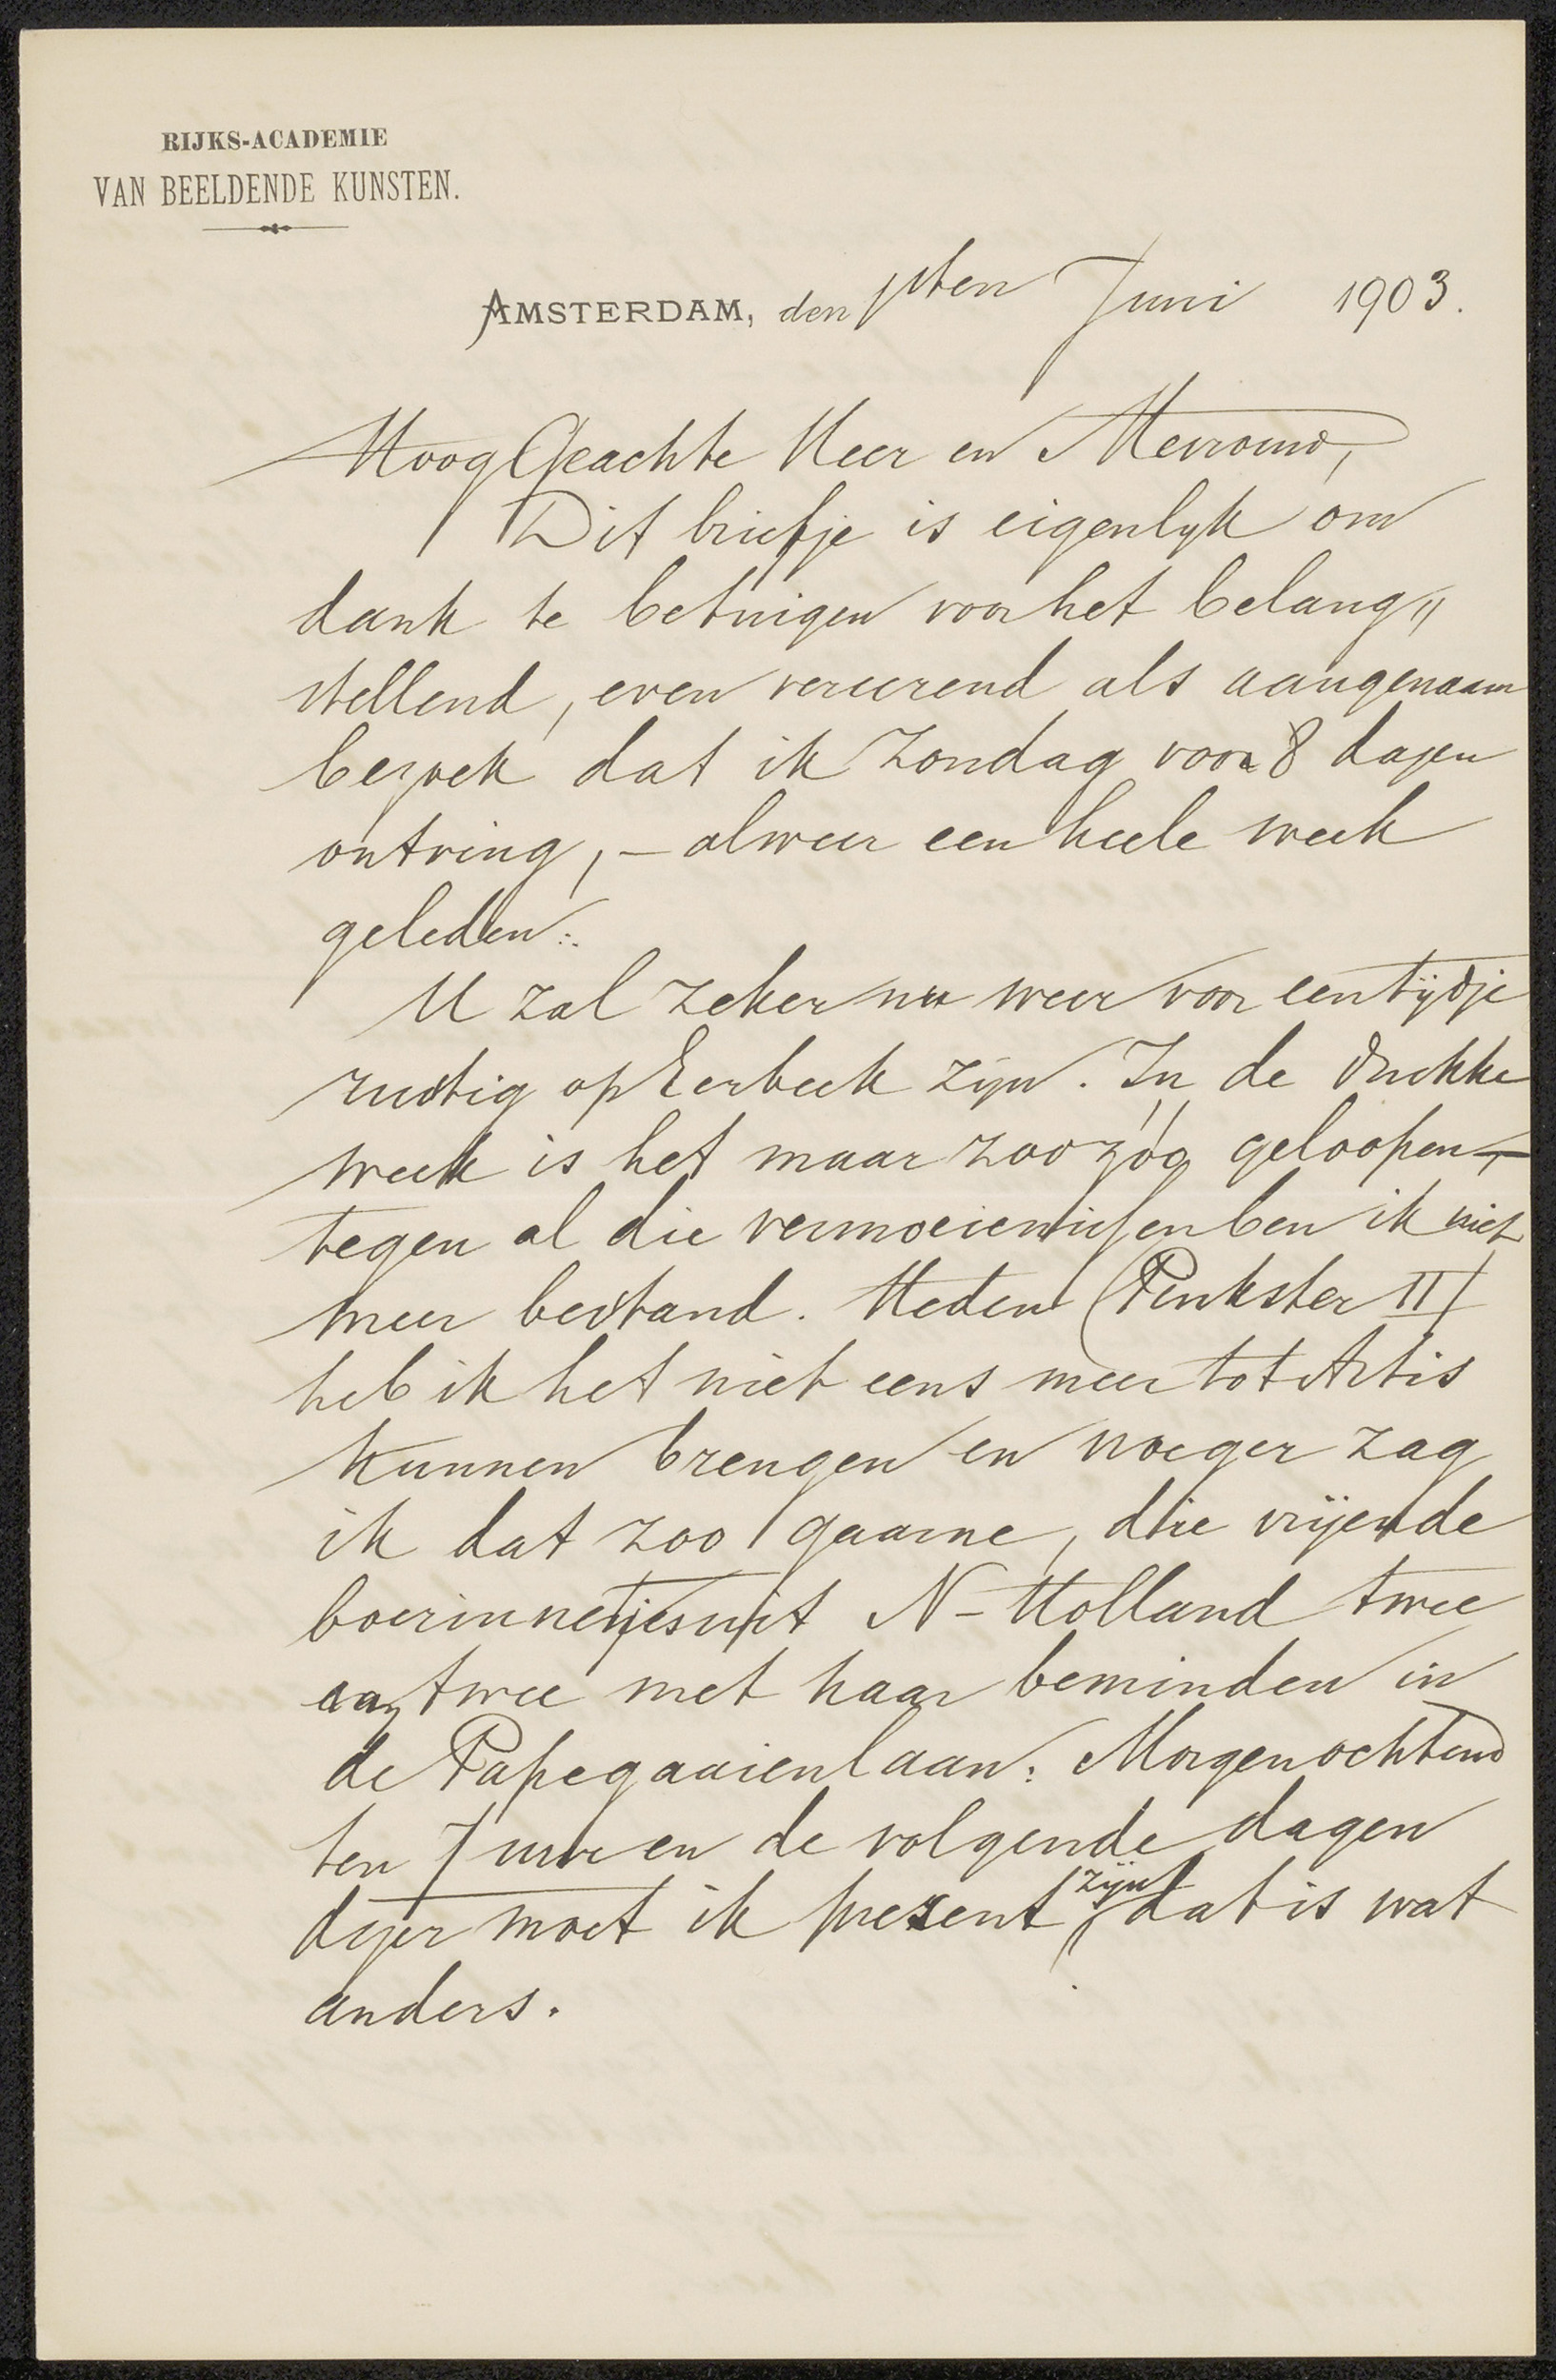 RIJKS-ACADEMIE
VAN BEELDENDE KUNSTEN.
AMSTERDAM, den 1sten Juni 1903.
HoogGeachte Heer en Mevrouw,
Dit briefje is eigenlyk om
dank te betuigen voor het belang„
stellend, even vereerend als aangenaam
bezoek dat ik Zondag voor 8 dagen
ontving, – alweer een heele week
geleden.
U zal zeker nu weer voor een tijdje
rustig op Eerbeek zijn. In de drukke
week is het maar zoo zóó geloopen –
tegen al die vermoeienissen ben ik niet
meer bestand. Heden (Pinkster II)
heb ik het niet eens meer tot Artis
kunnen brengen en vroeger zag
ik dat zoo gaarne, die vrijende
boerinnetjes uit N-Holland twee
aan twee met haar beminden in
de Papegaaienlaan. Morgenochtend
ten 7 ure en de volgende dagen
moet ik present zijn dat is wat
anders.